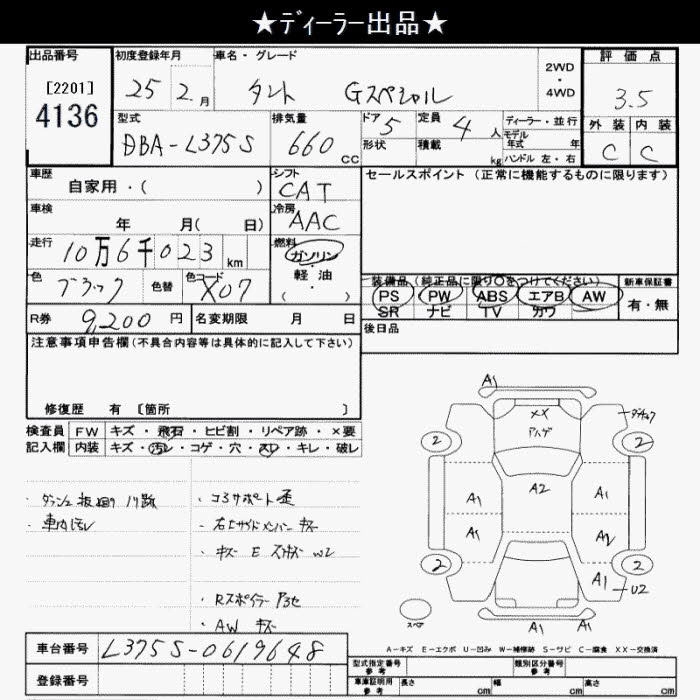 ★ディーラー出品★
出品番号 初度登録年月 車名・グレード 評価点
[2201] 4136
25 2月 タント Gスペシャル 2WD・4WD 3.5
型式 排気量 ドア 5 定員 4人 ディーラー・並行 外装 内装
DBA-L375S 660cc 形状 積載 kg モデル年式 年 C C
ハンドル 左・右
車歴 自家用・( ) シフト CAT セールスポイント (正常に機能するものに限ります)
車検 年 月( 日) 冷房 AAC
走行 10万6千023km 燃料 ガソリン
軽油
( ・ )
色 ブラック 色替 色コード X07 装備品(純正品に限り○をつけてください) 新車保証書
PS PW ABS エアB AW 有・無
SR ナビ TV カワ
R券 9,200円 名変期限 月 日 後日品
注意事項申告欄(不具合内容等は具体的に記入して下さい)
修復歴 有 [箇所 ]
検査員 FW キズ・飛石・ヒビ割・リペア跡・×要
記入欄 内装 キズ・汚レ・コゲ・穴・スレ・キレ・破レ
・車内汚レ
・コアサポート歪
・キズ E W2
・Rスポイラー
・AW キズ
A1
XX
2 2
A2
A1 A1
A1 A2
2 A1 2
U2
スペア A1 A1
A-キズ E-エクボ U-凹み W-補修跡 S-サビ C-腐食 XX-交換済
車台番号 L375S-0619648
登録番号
型式指定番号 参考 類別区分番号 参考
車庫証明用 参考 長さ cm 幅 cm 高さ cm